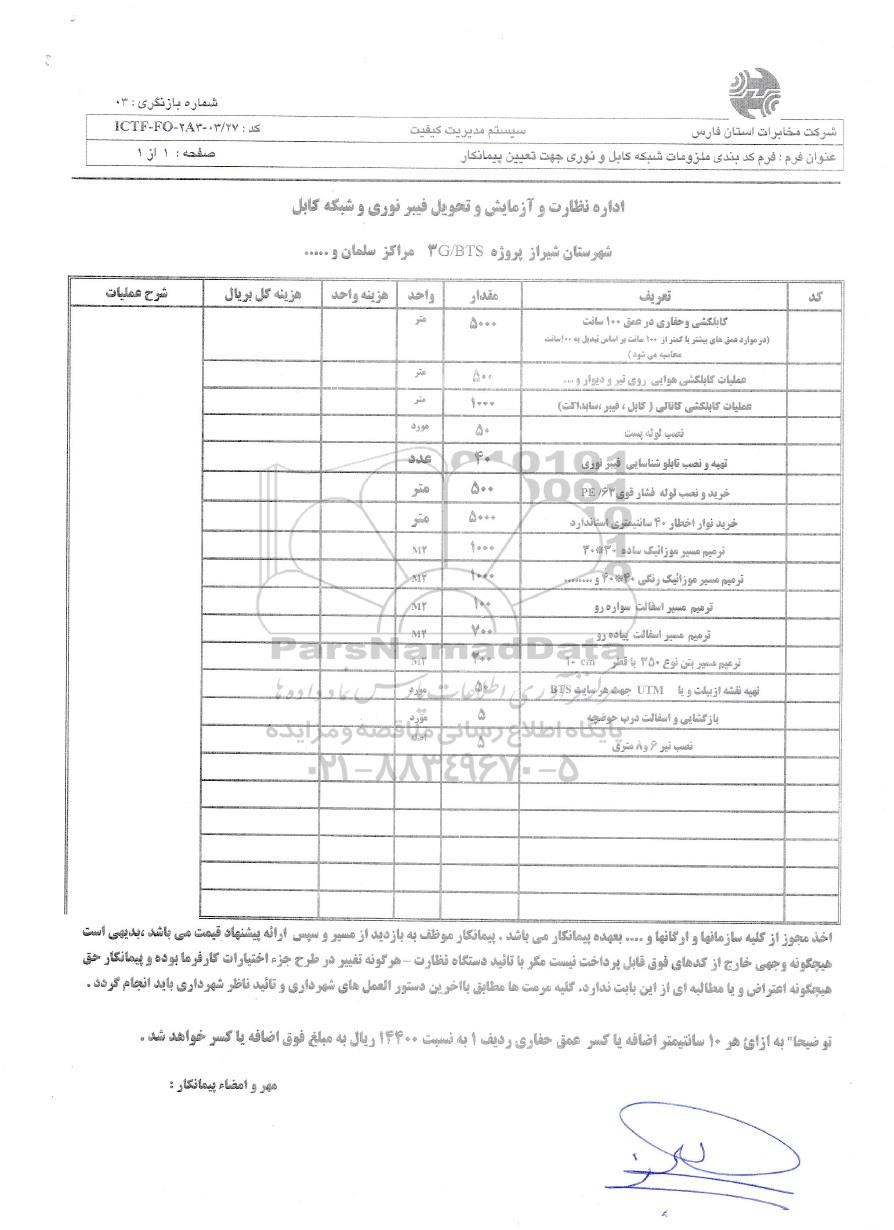 شماره بازنگری : ۰۳
شرکت مخابرات استان فارس سیستم مدیریت کیفیت کد : ICTF-FO-۲A۳-۰۳/۲۷
عنوان فرم : فرم کد بندی ملزومات شبکه کابل و نوری جهت تعیین پیمانکار صفحه : ۱ از ۱
اداره نظارت و آزمایش و تحویل فیبر نوری و شبکه کابل
شهرستان شیراز پروژه ۳G/BTS مراکز سلمان و .....
کد تعریف مقدار واحد هزینه واحد هزینه کل بریال شرح عملیات
کابلکشی وحفاری در عمق ۱۰۰ سانت ۵۰۰۰ متر
(در موارد عمق های بیشتر یا کمتر از ۱۰۰ سانت بر اساس تبدیل به ۱۰۰سانت
محاسبه می شود )
عملیات کابلکشی هوایی روی تیر و دیوار و ... ۵۰۰ متر
عملیات کابلکشی کانالی ( کابل ، فیبر ،سابداکت) ۱۰۰۰ متر
نصب لوله پست ۵۰ مورد
تهیه و نصب تابلو شناسایی فیبر نوری ۴۰ عدد
خرید و نصب لوله فشار قوی PE /۶۳ ۵۰۰ متر
خرید نوار اخطار ۴۰ سانتیمتری استاندارد ۵۰۰۰ متر
ترمیم مسیر موزائیک ساده ۳۰*۳۰ ۱۰۰۰ M۲
ترمیم مسیر موزائیک رنگی ۴۰*۴۰ و ........ ۱۰۰۰ M۲
ترمیم مسیر اسفالت سواره رو ۱۰۰ M۲
ترمیم مسیر اسفالت پیاده رو ۷۰۰ M۲
ترمیم مسیر بتن نوع ۳۵۰ با قطر ۱۰ cm ۳۰۰ M۲
تهیه نقشه ازبیلت و یا UTM جهت هر سایت BTS ۵۰ مورد
بازگشایی و اسفالت درب حوضچه ۵ مورد
نصب تیر ۶ و۸ متری ۵ اصله
ParsNamadData
پایگاه اطلاع رسانی مناقصه و مزایده
۰۲۱-۸۸۳۴۹۶۷۰-۵
اخذ مجوز از کلیه سازمانها و ارگانها و .... بعهده پیمانکار می باشد . پیمانکار موظف به بازدید از مسیر و سپس ارائه پیشنهاد قیمت می باشد ،بدیهی است
هیچگونه وجهی خارج از کدهای فوق قابل پرداخت نیست مگر با تائید دستگاه نظارت – هرگونه تغییر در طرح جزء اختیارات کارفرما بوده و پیمانکار حق
هیچگونه اعتراض و یا مطالبه ای از این بابت ندارد. کلیه مرمت ها مطابق بااخرین دستور العمل های شهرداری و تائید ناظر شهرداری باید انجام گردد .
تو ضیحا" به ازائ هر ۱۰ سانتیمتر اضافه یا کسر عمق حفاری ردیف ۱ به نسبت ۱۴۴۰۰ ریال به مبلغ فوق اضافه یا کسر خواهد شد .
مهر و امضاء پیمانکار :